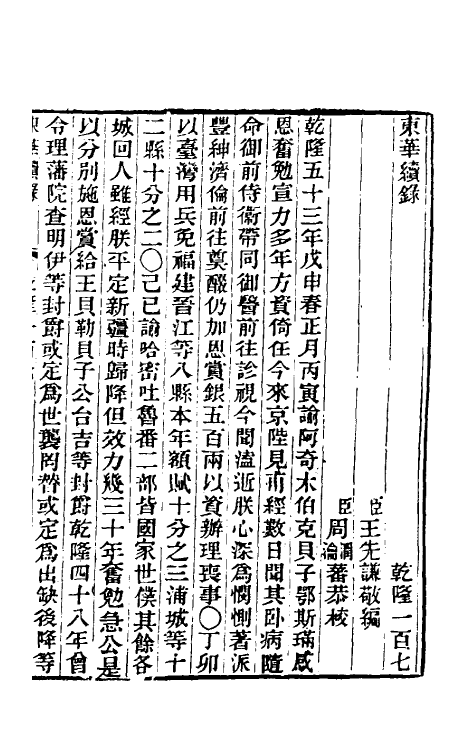 東華續錄
乾隆一百七
臣王先謙敬編
臣周潤蕃周瀹蕃恭校
乾隆五十三年戊申春正月丙寅諭阿奇木伯克貝子鄂斯璊感
恩奮勉宣力多年方資倚任今來京陛見甫經數日聞其卧病隨
命御前侍衛帶同御醫前往診視今聞溘逝朕心深為憫惻著派
豐紳濟倫前往奠醊仍加恩賞銀五百兩以資辦理喪事○丁卯
以臺灣用兵免福建晉江等八縣本年額賦十分之三浦城等十
二縣十分之二○己巳諭哈密吐魯番二部皆國家世僕其餘各
城回人雖經朕平定新疆時歸降但效力幾三十年奮勉急公是
以分別施恩賞給王貝勒貝子公台吉等封爵乾隆四十八年曾
令理藩院查明伊等封爵或定為世襲罔替或定為出缺後降等
東華續錄